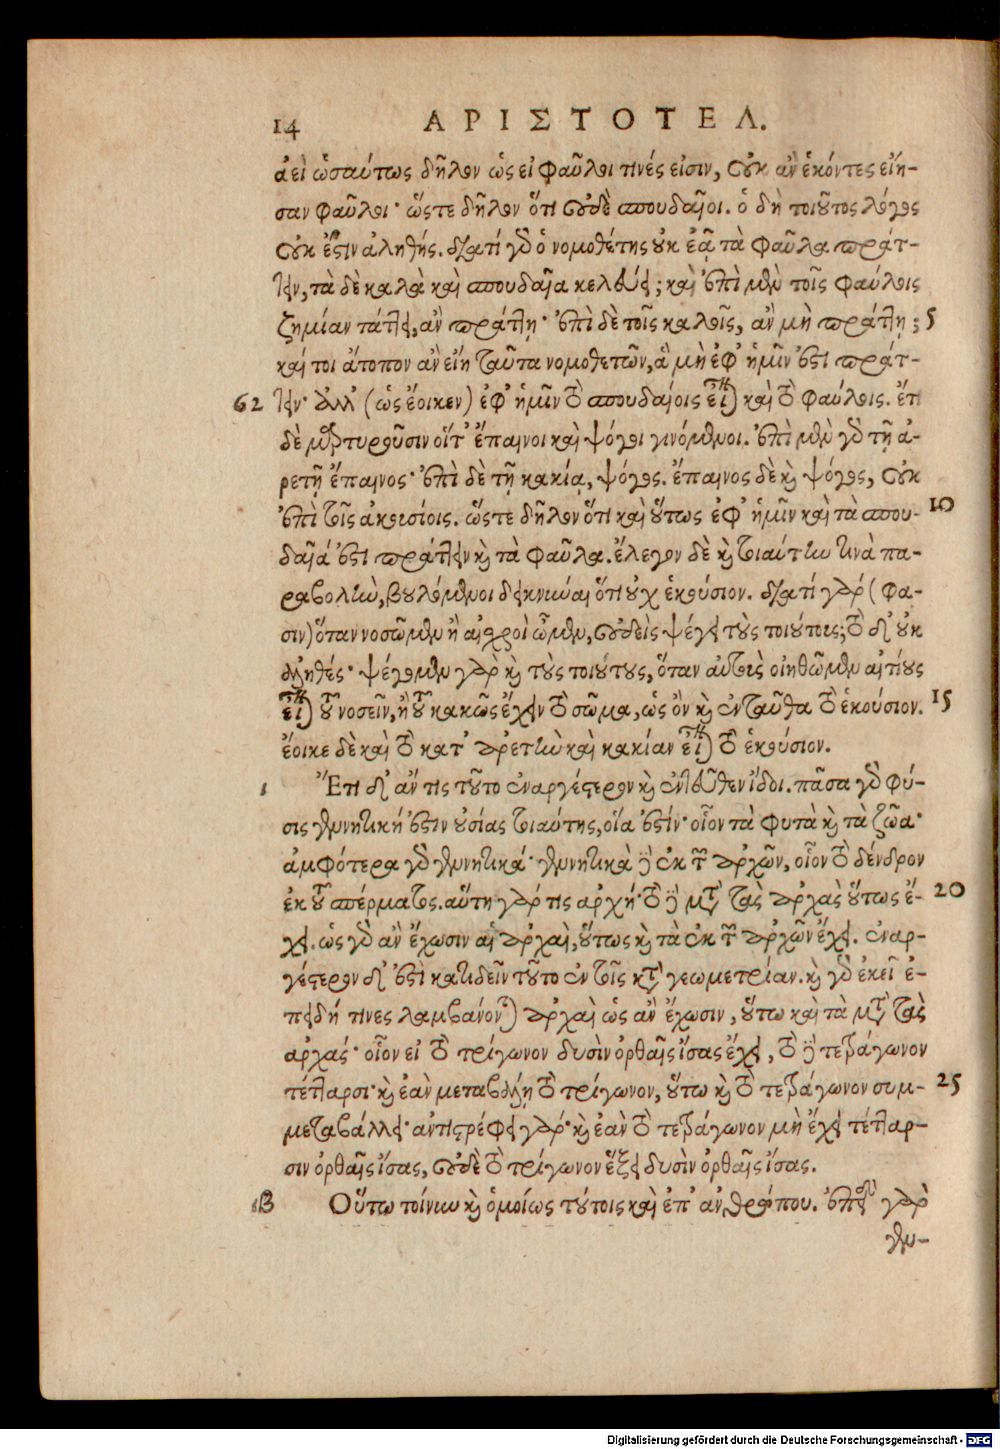 14 ΑΡΙΣΤΟΤΕΛ.
ἀεὶ ὡσαύτως δῆλον ὡς εἰ φαῦλοι τινές εἰσιν, οὐκ ἂν ἑκόντες εἴη-
σαν φαῦλοι· ὥστε δῆλον ὅτι οὐδὲ σπουδαῖοι. ὁ δὴ τοιοῦτος λόγος
οὐκ ἔστιν ἀληθής. διατί γὰρ ὁ νομοθέτης οὐκ ἐᾷ τὰ φαῦλα πράτ-
τειν, τὰ δὲ καλὰ καὶ σπουδαῖα κελεύει; καὶ ἐπὶ μὲν τοῖς φαύλοις
ζημίαν τάττει, ἂν πράττῃ· ἐπὶ δὲ τοῖς καλοῖς, ἂν μὴ πράττῃ; 5
καίτοι ἄτοπον ἂν εἴη ταῦτα νομοθετῶν, ἃ μὴ ἐφ' ἡμῖν ἐστι πράτ-
62 τειν· ἀλλ' (ὡς ἔοικεν) ἐφ' ἡμῖν τὸ σπουδαίοις εἶναι καὶ τὸ φαύλοις. ἔτι
δὲ μαρτυροῦσιν οἵτ' ἔπαινοι καὶ ψόγοι γινόμενοι. ἐπὶ μὲν γὰρ τῇ ἀ-
ρετῇ ἔπαινος· ἐπὶ δὲ τῇ κακίᾳ, ψόγος. ἔπαινος δὲ καὶ ψόγος, οὐκ
ἐπὶ τοῖς ἀκουσίοις. ὥστε δῆλον ὅτι καὶ οὕτως ἐφ' ἡμῖν καὶ τὰ σπου- 10
δαῖά ἐστι πράττειν καὶ τὰ φαῦλα. ἔλεγον δὲ καὶ τοιαύτην τινὰ πα-
ραβολὴν, βουλόμενοι δεικνύναι ὅτι οὐχ ἑκούσιον. διατί γάρ (φα-
σιν) ὅταν νοσῶμεν ἢ αἰσχροὶ ὦμεν, οὐδεὶς ψέγει τοὺς τοιούτους; τὸ δ' οὐκ
ἀληθές· ψέγομεν γὰρ καὶ τοὺς τοιούτους, ὅταν αὐτοὺς οἰηθῶμεν αἰτίους
εἶναι τοῦ νοσεῖν, ἢ τοῦ κακῶς ἔχειν τὸ σῶμα, ὡς ὂν καὶ ἐνταῦθα τὸ ἑκούσιον. 15
ἔοικε δὲ καὶ τὸ κατ' ἀρετὴν καὶ κακίαν εἶναι τὸ ἑκούσιον.
ι Ἔτι δ' ἄν τις τοῦτο ἐναργέστερον καὶ ἐντεῦθεν ἴδοι. πᾶσα γὰρ φύ-
σις γεννητική ἐστιν οὐσίας τοιαύτης, οἵα ἐστίν· οἷον τὰ φυτὰ καὶ τὰ ζῶα·
ἀμφότερα γὰρ γεννητικά· γεννητικὰ δὲ ἐκ τῶν ἀρχῶν, οἷον τὸ δένδρον
ἐκ τοῦ σπέρματος. αὕτη γάρ τις ἀρχή· τὸ δὲ μετὰ τὰς ἀρχὰς οὕτως ἔ- 20
χει. ὡς γὰρ ἂν ἔχωσιν αἱ ἀρχαὶ, οὕτως καὶ τὰ ἐκ τῶν ἀρχῶν ἔχει. ἐναρ-
γέστερον δ' ἐστὶ κατιδεῖν τοῦτο ἐν τοῖς κατὰ γεωμετρίαν. καὶ γὰρ ἐκεῖ ἐ-
πειδή τινες λαμβάνονται ἀρχαὶ ὡς ἂν ἔχωσιν, οὕτω καὶ τὰ μετὰ τὰς
ἀρχάς· οἷον εἰ τὸ τρίγωνον δυσὶν ὀρθαῖς ἴσας ἔχει, τὸ δὲ τετράγωνον
τέτταρσι· καὶ ἐὰν μεταβάλῃ τὸ τρίγωνον, οὕτω καὶ τὸ τετράγωνον συμ- 25
μεταβάλλει· ἀντιστρέφει γάρ· καὶ ἐὰν τὸ τετράγωνον μὴ ἔχει τέτταρ-
σιν ὀρθαῖς ἴσας, οὐδὲ τὸ τρίγωνον ἕξει δυσὶν ὀρθαῖς ἴσας.
ιβ Οὕτω τοίνυν καὶ ὁμοίως τούτοις καὶ ἐπ' ἀνθρώπου. ἐπεὶ γὰρ
γεν-
Digitalisierung gefördert durch die Deutsche Forschungsgemeinschaft - DFG